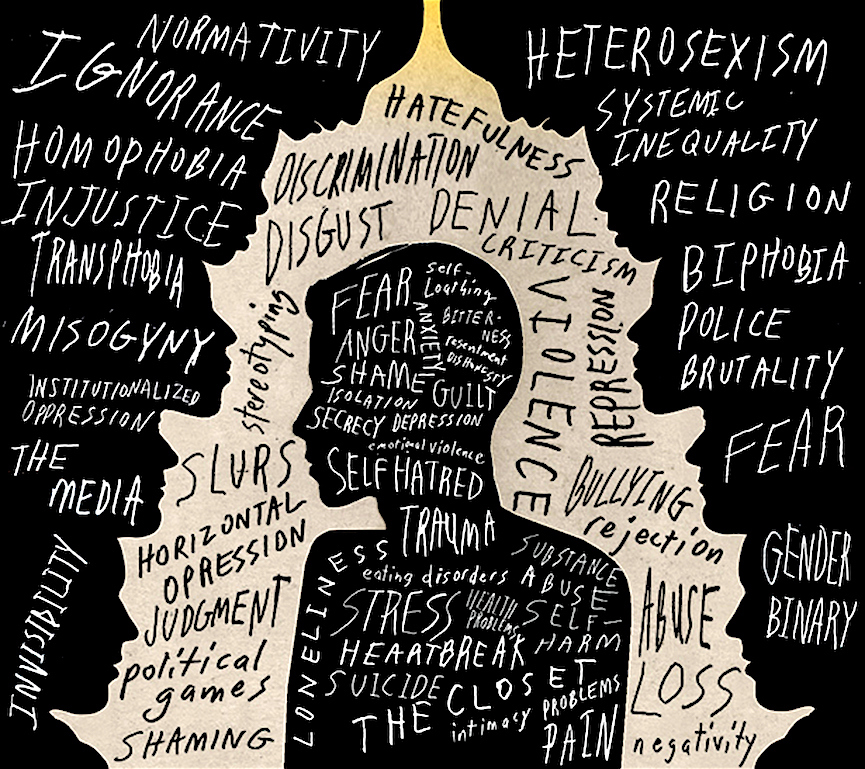 NORMATIVITY
IGNORANCE
HOMOPHOBIA
INJUSTICE
TRANSPHOBIA
MISOGYNY
INSTITUTIONALIZED
OPPRESSION
THE
MEDIA
INVISIBILITY
HATEFULNESS
DISCRIMINATION
DISGUST
DENIAL
CRITICISM
stereotyping
VIOLENCE
REPRESSION
SLURS
HORIZONTAL
OPRESSION
JUDGMENT
political
games
SHAMING
BULLYING
rejection
ABUSE
LOSS
negativity
FEAR
self-
Loathing
ANXIETY
BITTER-
NESS
ANGER
resentment
DISHONESTY
SHAME
GUILT
ISOLATION
SECRECY DEPRESSION
emotional violence
SELF HATRED
TRAUMA
LONELINESS
eating disorders
SUBSTANCE
ABUSE
STRESS
HEALTH
PROBLEMS
SELF-
HARM
HEARTBREAK
SUICIDE
THE CLOSET
intimacy
PROBLEMS
PAIN
HETEROSEXISM
SYSTEMIC
INEQUALITY
RELIGION
BIPHOBIA
POLICE
BRUTALITY
FEAR
GENDER
BINARY